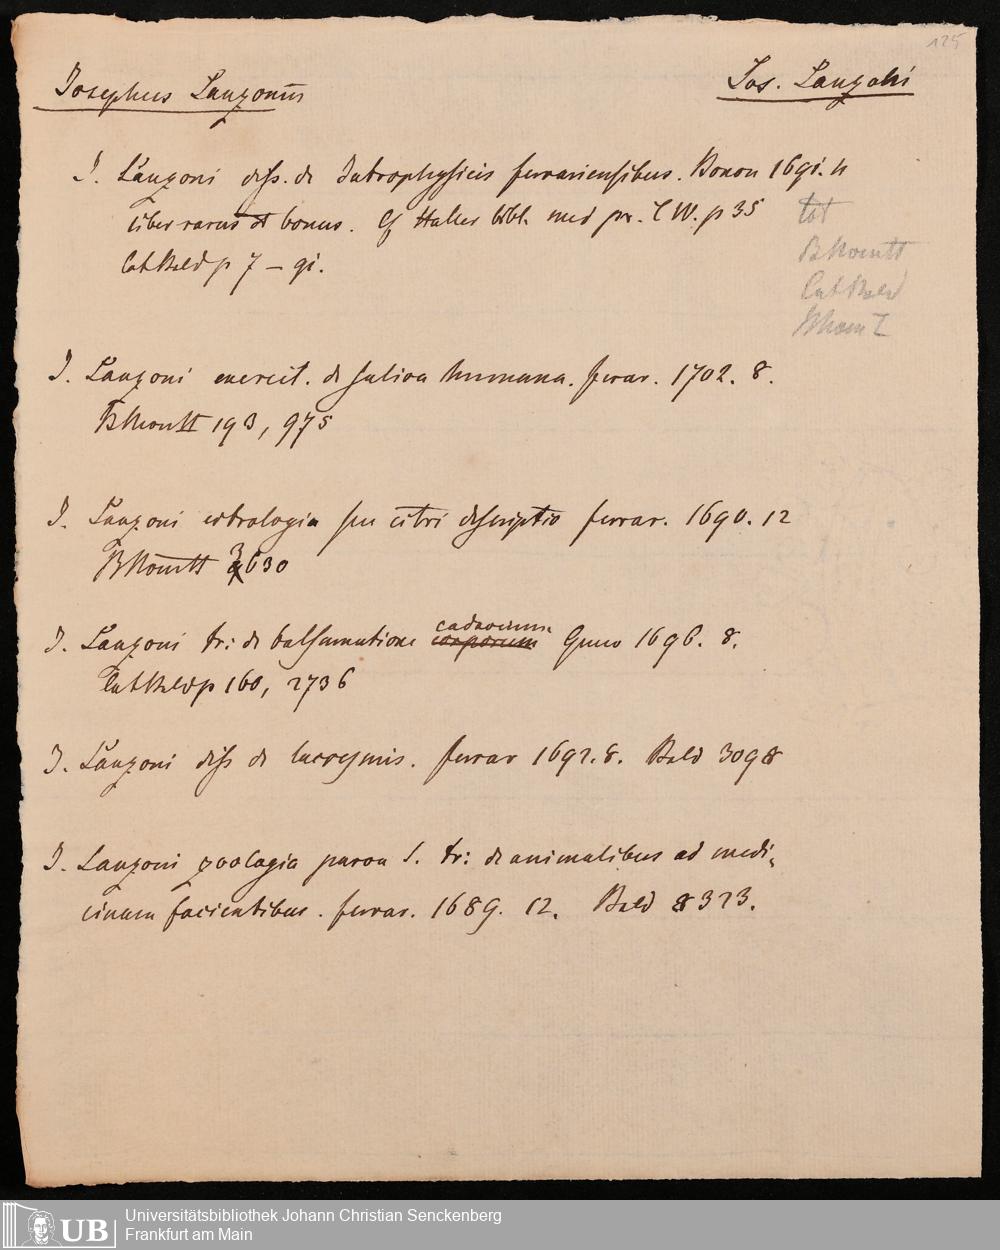 125
Josephus Lanzonus
Jos. Lanzoni
J. Lanzoni diss. de Iatrophysicis ferrariensibus. Bonon 1691. 4
liber rarus et bonus. Cf Haller bibl. med pr. T IV. p 35
Cat Bald p 7 – 91.
tot
Cat Bald
J. Lanzoni exercit. de saliva humana. ferrar. 1702. 8.
193, 975
J. Lanzoni citrologia seu citri descriptio ferrar. 1690. 12
3630
J. Lanzoni tr: de balsamatione corporum cadaverum Genev 1696. 8.
Cat Bald p 160, 2736
J. Lanzoni diss de lacrymis. ferrar 1692. 8. Bald 3098
J. Lanzoni zoologia parva s. tr: de animalibus ad medi-
cinam facientibus. ferrar. 1689. 12. Bald 8323.
UB
Universitätsbibliothek Johann Christian Senckenberg
Frankfurt am Main